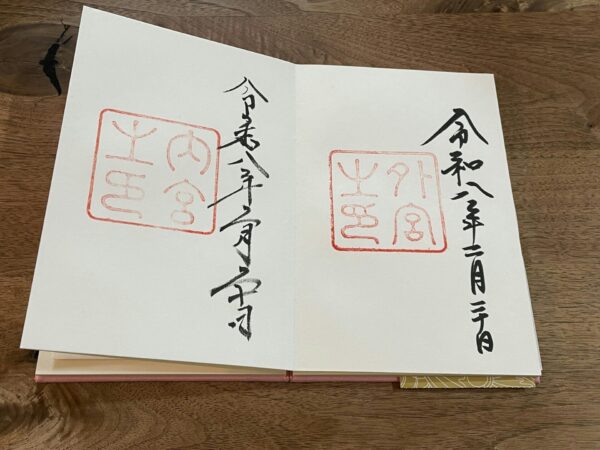 令和八年二月二十日
外宮
之印
令和八年二月二十日
内宮
之印